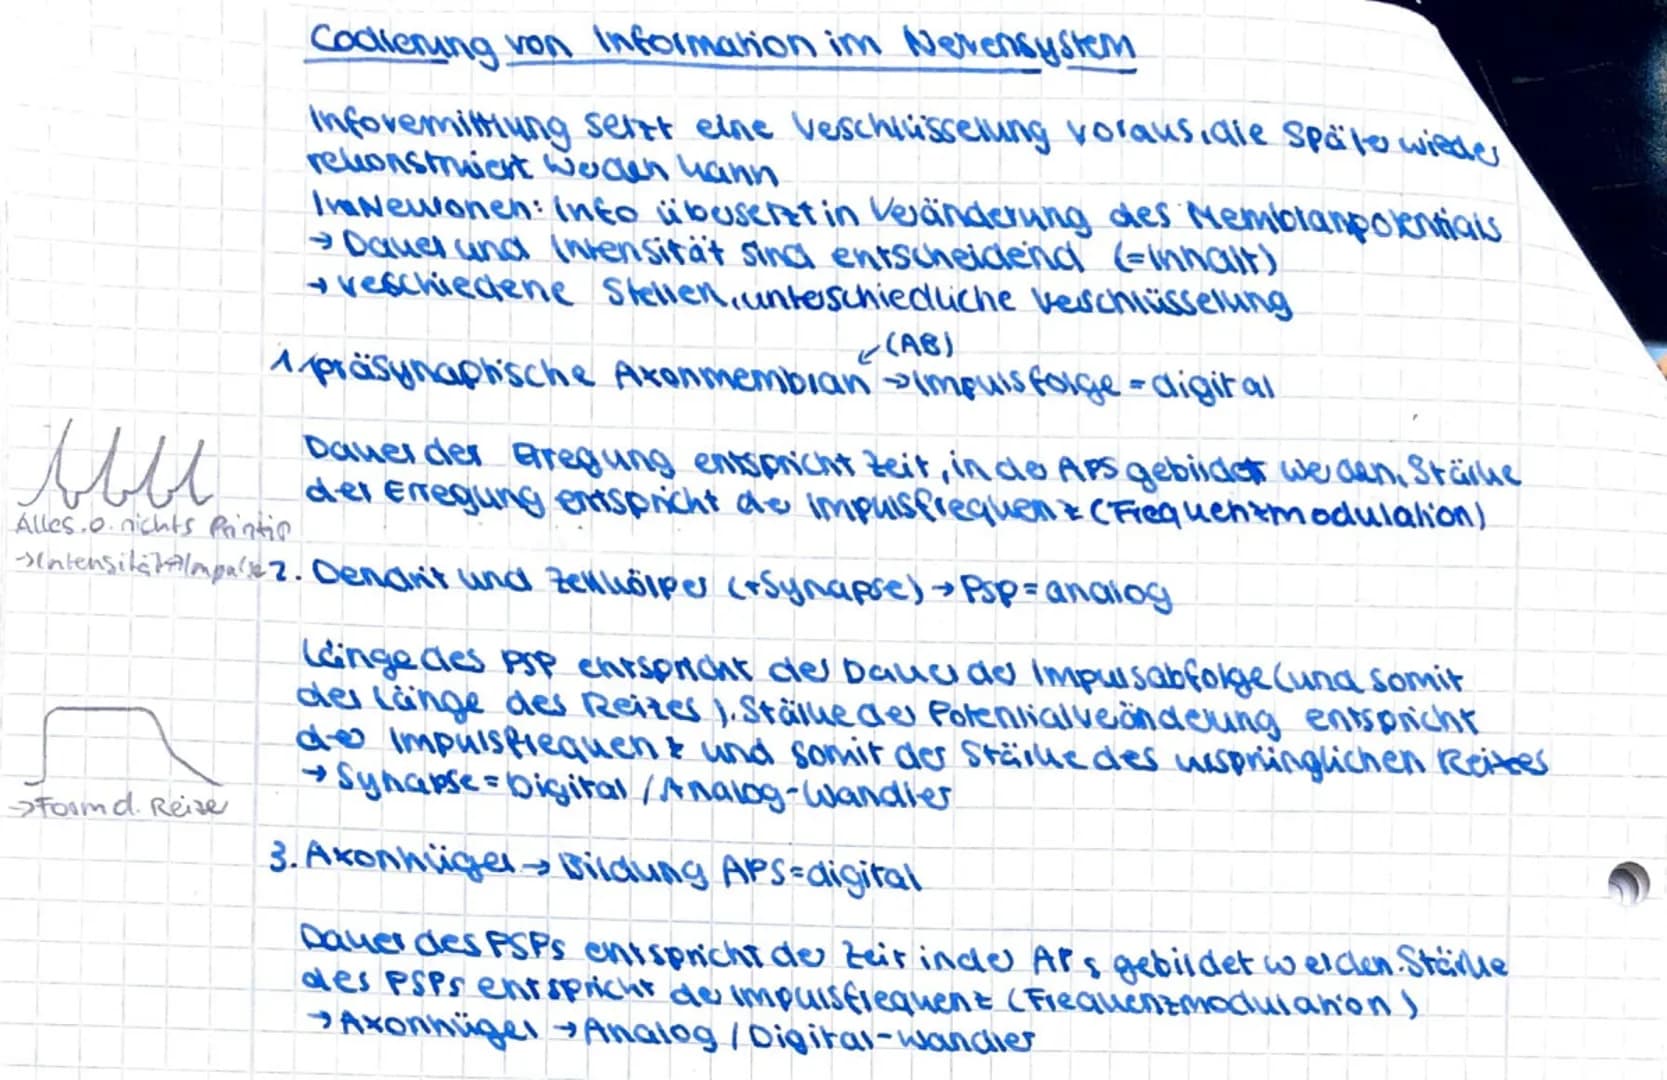 Codierung von Information im Nervensystem
Infovermittlung setzt eine Verschlüsselung voraus, die später wieder
rekonstruiert werden kann
Im Neuronen: Info übersetzt in Veränderung des Membranpotentials
→ Dauer und Intensität sind entscheidend (=Inhalt)
→ verschiedene Stellen, unterschiedliche Verschlüsselung
(AB)
1. präsynaptische Axonmembran → Impulsfolge = digital
Dauer der Erregung entspricht Zeit, in der APs gebildet werden, Stärke
der Erregung entspricht der Impulsfrequenz (Frequenzmodulation)
Alles. o. nichts Prinzip
→Intensität≠Impulse
2. Dendrit und Zellkörper (+Synapse) → PSP = analog
Länge des PSP entspricht der Dauer der Impulsabfolge (und somit
der Länge des Reizes). Stärke der Potentialveränderung entspricht
der Impulsfrequenz und somit der Stärke des ursprünglichen Reizes
→ Synapse = Digital / Analog-Wandler
→Form d. Reize
3. Axonhügel → Bildung APs = digital
Dauer des PSPs entspricht der Zeit in der APs gebildet werden. Stärke
des PSPs entspricht der Impulsfrequenz (Frequenzmodulation)
→ Axonhügel → Analog / Digital-Wandler